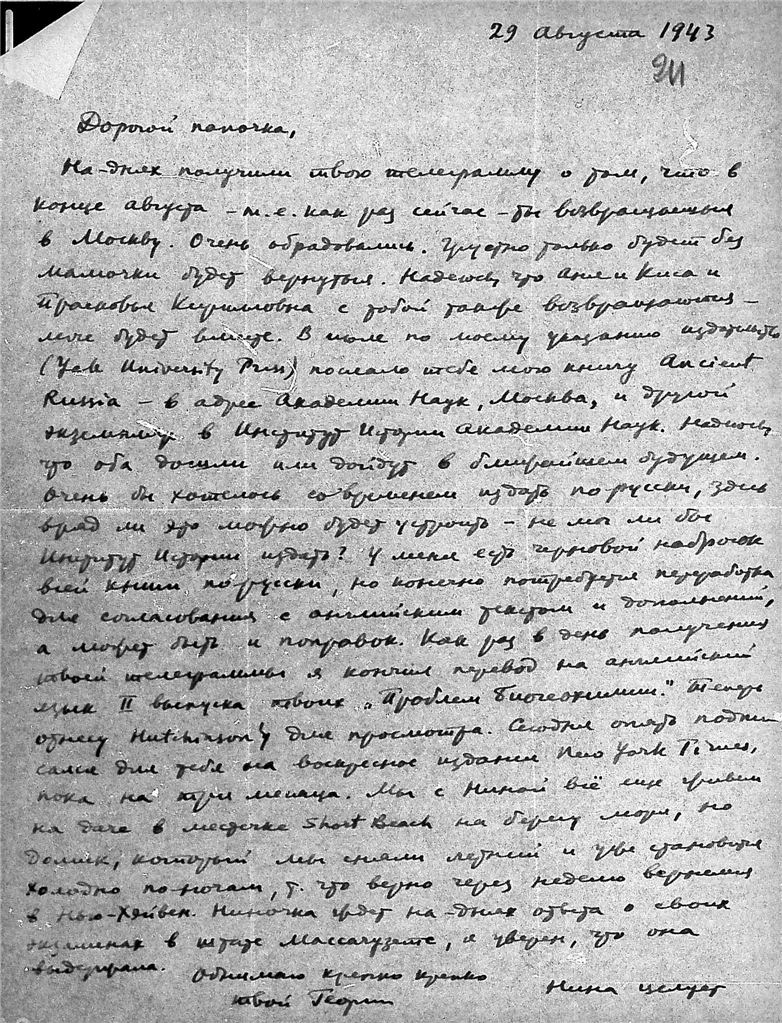 29 Августа 1943
Дорогой папочка,
На-днях получили твою телеграмму о том, что в
конце августа - т.е. как раз сейчас - ты возвращаешься
в Москву. Очень обрадовались. Грустно только будет без
мамочки будет вернуться. Надеюсь, что Аня и Киса и
Прасковья Кирилловна с тобой также возвращаются -
легче будет вместе. В июле по моему указанию издательство
(Yale University Press) послало тебе мою книгу Ancient
Russia - в адрес Академии Наук, Москва, и другой
экземпляр в Институт Истории Академии Наук. Надеюсь,
что оба дошли или дойдут в ближайшем будущем.
Очень бы хотелось со временем издать по русски, здесь
вряд ли это можно будет устроить - не мог ли бы
Институт Истории издать? У меня есть черновой набросок
всей книги по-русски, но конечно потребуется переработка
для согласования с английским текстом и дополнений,
а может быть и поправок. Как раз в день получения
твоей телеграммы я кончил перевод на английский
язык II выпуска твоих „Проблем Биогеохимии." Теперь
отнесу Hutchinson'у для просмотра. Сегодня опять подпи-
сался для тебя на воскресное издание New York Times,
пока на три месяца. Мы с Ниной всё еще живем
на даче в местечке Short Beach на берегу моря, но
домик, который мы сняли летний и уже становится
холодно по-ночам, т. что верно через неделю вернемся
в Нью-Хэйвен. Ниночка ждет на-днях ответа о своих
экзаминах в штате Массачузетс, я уверен, что она
выдержала.
Обнимаю крепко крепко
твой Георгий
Нина целует